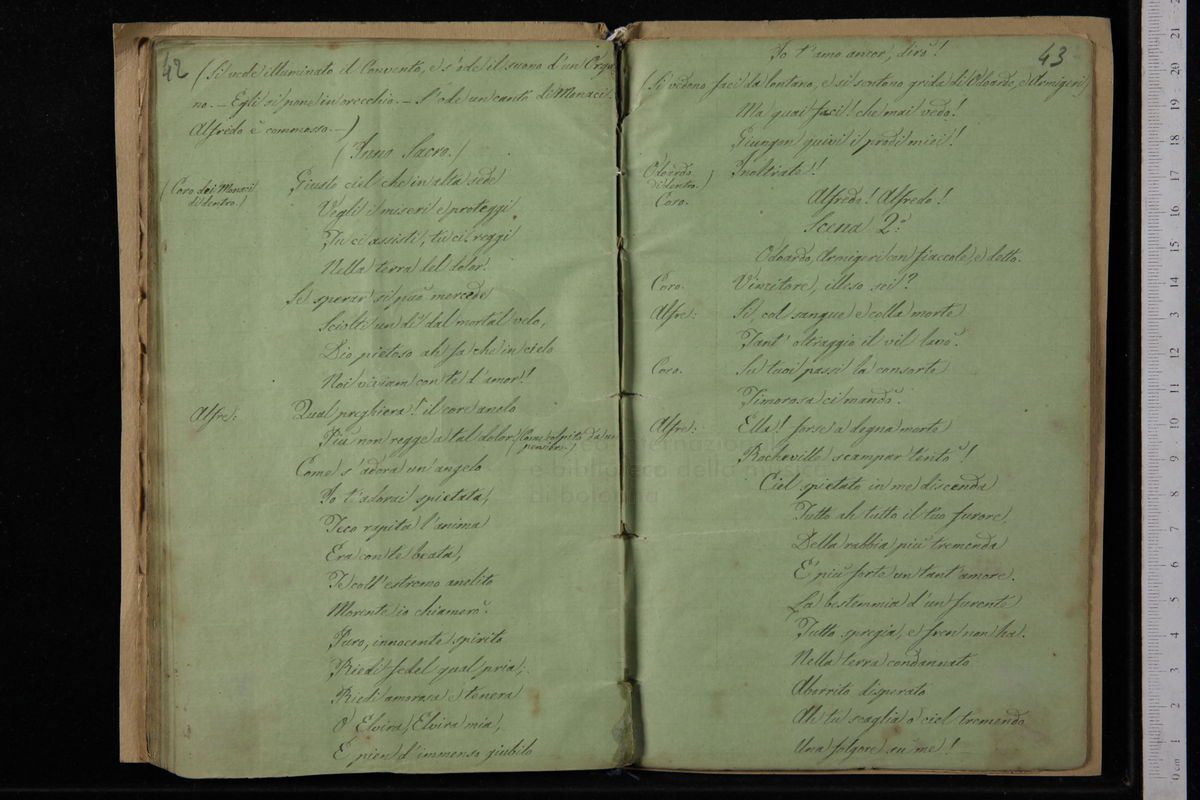 42
(Si vede illuminato il Convento, e s'ode il suono d'un Orga
no. – Egli si pone in orecchio. – S'ode un canto di Monaci.
Alfredo è commosso. –)
(Inno Sacro.)
(Coro dei Monaci
di dentro.)
Giusto ciel che in alta sede
Vegli i miseri e proteggi
Tu ci assisti, tu ci reggi
Nella terra del dolor.
Se sperar si può mercede
Sciolti un dì dal mortal velo,
Dio pietoso ah fa che in cielo
Noi viviam con te d'amor!
Alfre: Qual preghiera! il core anelo
Più non regge a tal dolor. (Come colpito da un
pensiero.)
Come s'adora un angelo
Io t'adorai spietata,
Teco rapita l'anima
Era con te beata,
Te coll'estremo anelito
Morente io chiamerò.
Puro, innocente spirito
Riedi fedel qual pria,
Riedi amorosa e tenera
O Elvira, Elvira mia,
E pien d'immenso giubilo
43
Io t'amo ancor, dirò!
(Si vedono faci da lontano, e si sentono grida di Odoardo, e Armigeri)
Ma quai faci! che mai vedo!
Giungon quivi i prodi miei!
Odoardo
di dentro.) Inoltrate!!
Coro. Alfredo! Alfredo!
Scena 2a:
Odoardo, Armigeri con fiaccole, e detto.
Coro. Vincitore, illeso sei?
Alfre: Sì, col sangue e colla morte
Tant' oltraggio il vil lavò.
Coro. Su tuoi passi la consorte
Timorosa ci mandò.
Alfre: Ella! forse a degna morte
Rocheville scampar tentò!
Ciel spietato in me discenda
Tutto ah tutto il tuo furore,
Della rabbia più tremenda
È più forte un tant' amore.
La bestemmia d'un furente
Tutto spregia, e fren non ha.
Nella terra condannato
Aborrito disperato
Ah tu scaglia o ciel tremendo
Una folgore su me!
e biblioteca della musica
di bologna